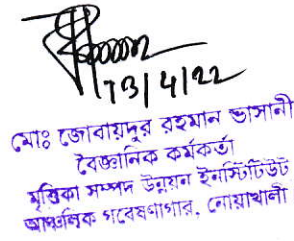 13/4/22
মোঃ জোবায়দুর রহমান ভাসানী
বৈজ্ঞানিক কর্মকর্তা
মৃত্তিকা সম্পদ উন্নয়ন ইনস্টিটিউট
আঞ্চলিক গবেষণাগার, নোয়াখালী